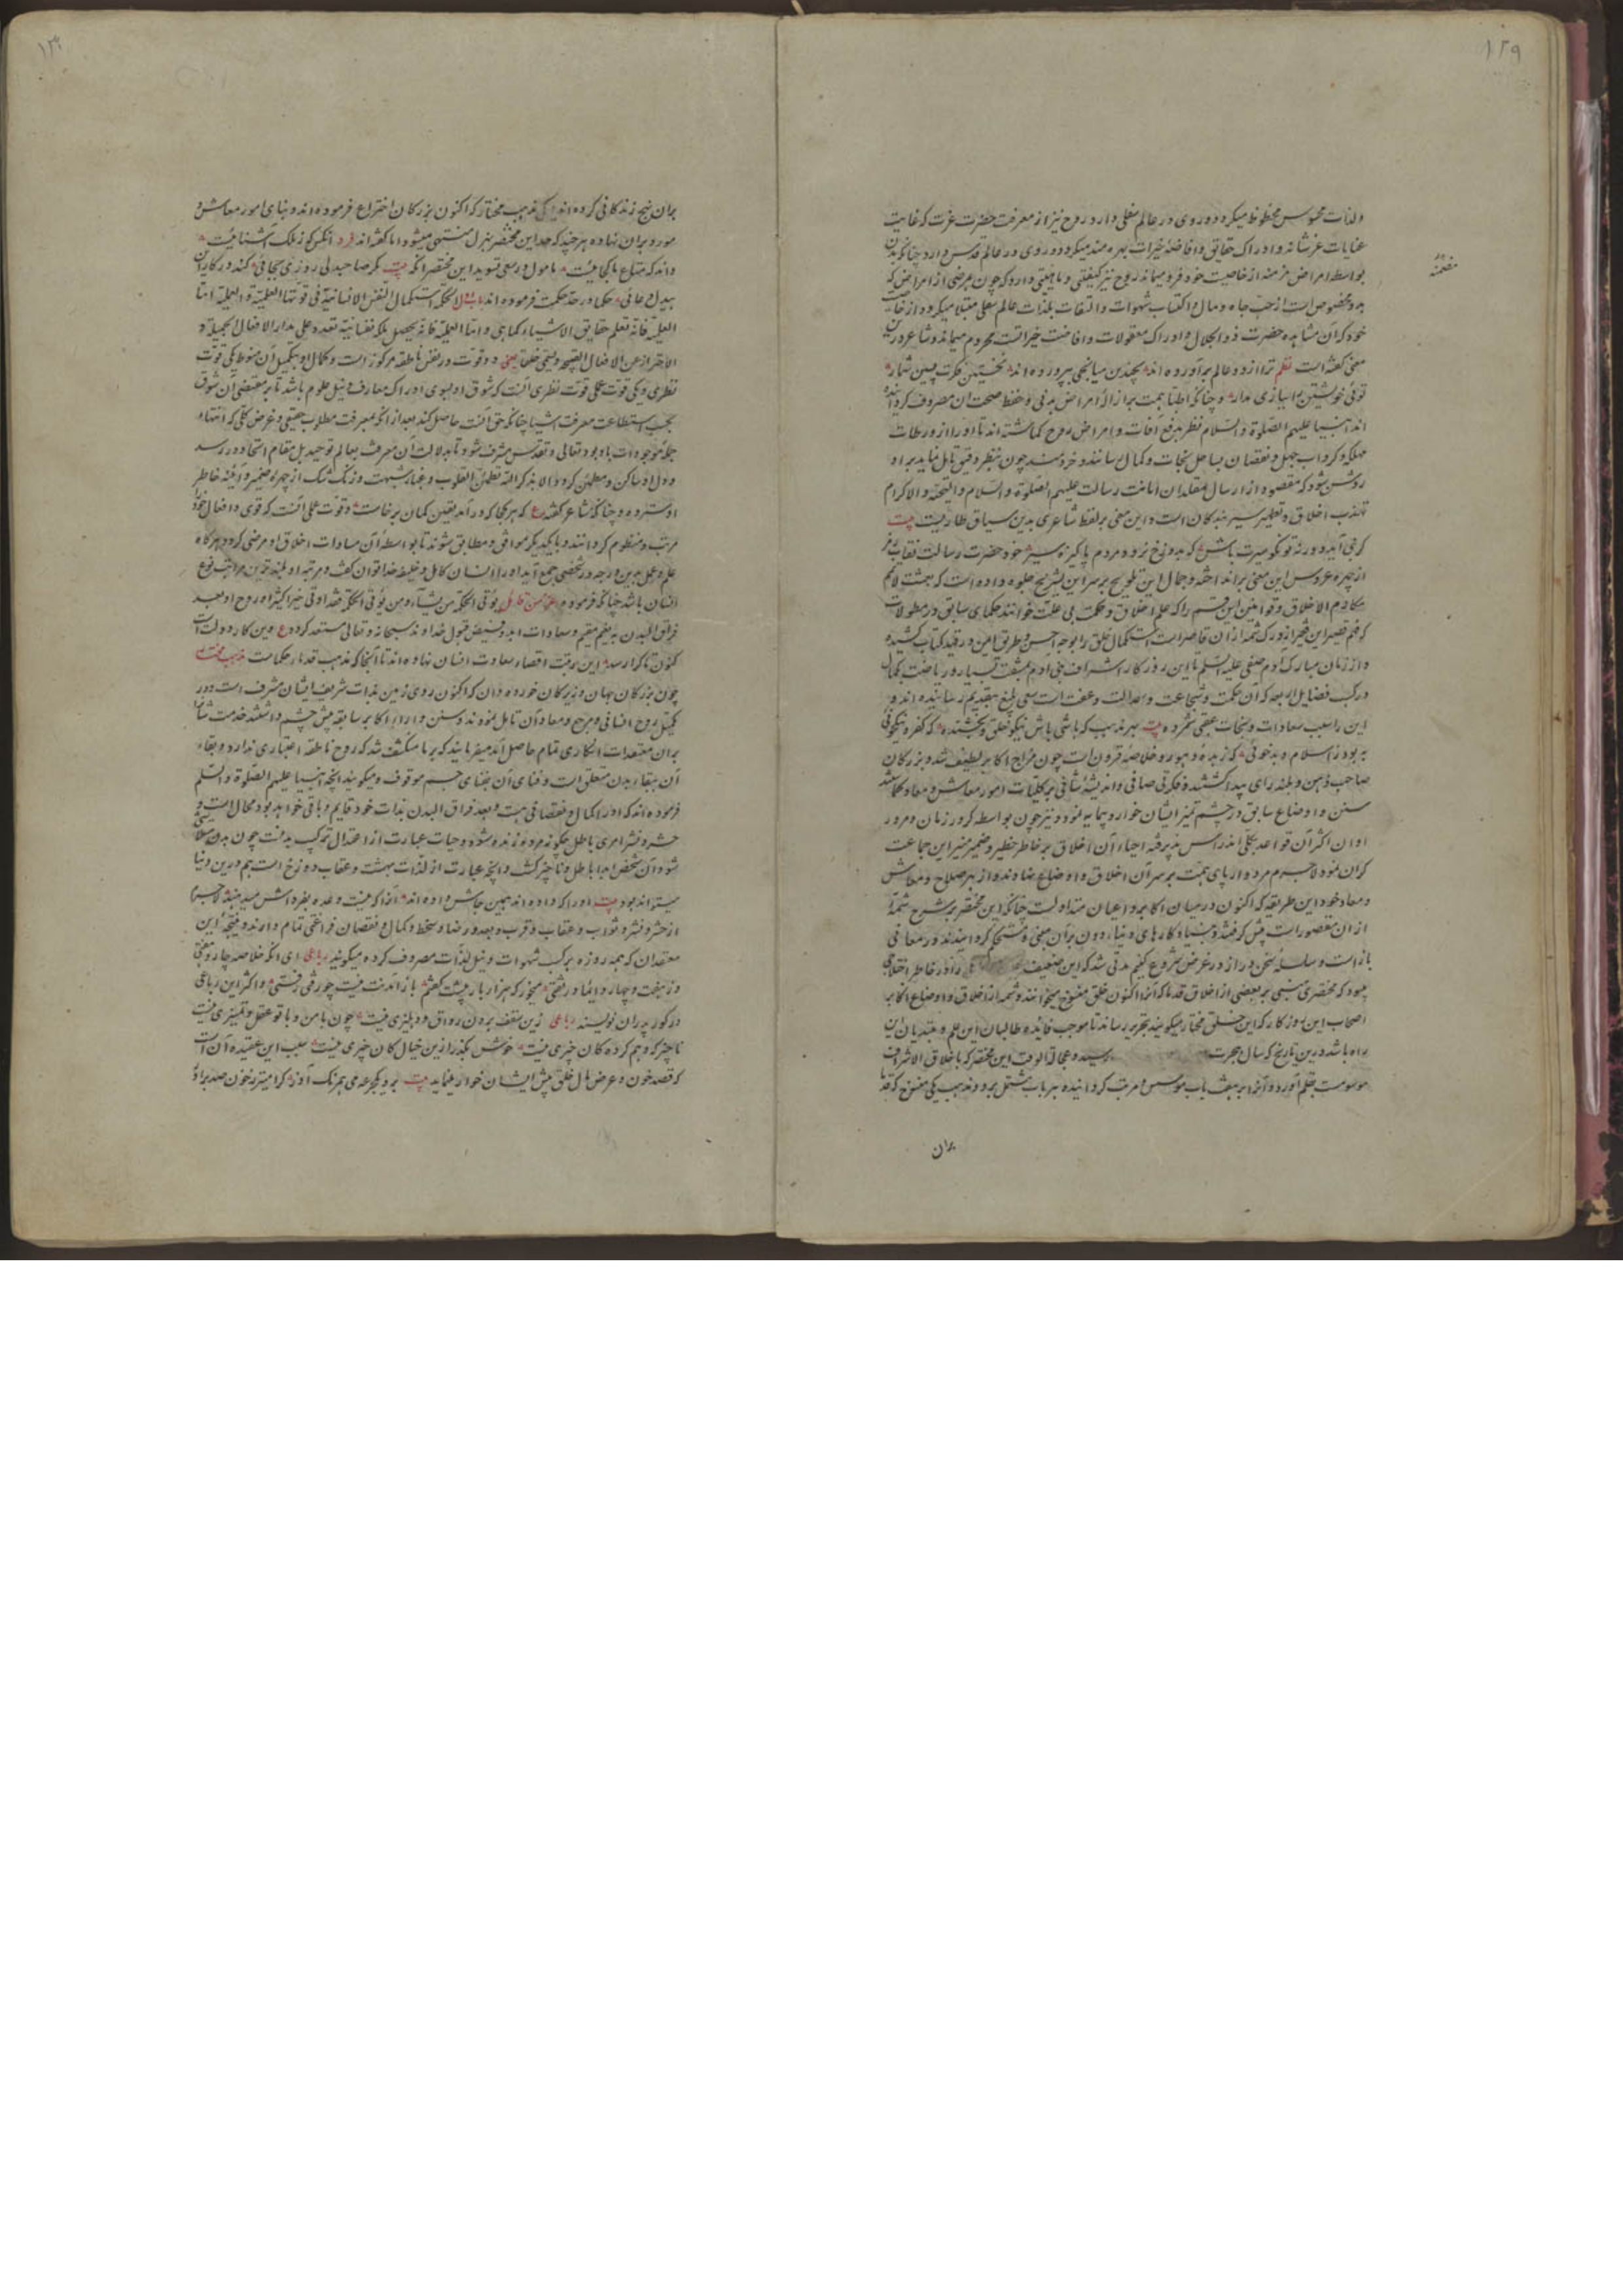 ۱۲۹
لذات محسوس محظوظ میگردد و روی در عالم سفلی دارد روح نیز از معرفت حضرت عزت که غایت
غایات عز شانه و ادراک حقایق و افاضهٔ خیرات بهره مند میگردد و روی در عالم قدس دارد چنانکه بدن
بواسطهٔ امراض مزمنه از خاصیت خود فرو میماند روح نیز کیفیتی و ماهیتی دارد که چون مرضی از امراض که
بدو مخصوص است از حب جاه و مال و اکتساب شهوات و التفات بلذات عالم سفلی مبتلا میگردد از خاصیت
خود که آن مشاهده حضرت ذوالجلال و ادراک معقولات و افاضت خیراتست محروم میماند و شاعر درین
معنی گفته است نظم ترا از دو عالم برآورده اند بچندین میانجی بپرورده اند نخستین فکرت پسین شمار
توئی خویشتن را ببازی مدار و چنانکه اطبا همت بر ازالهٔ امراض بدنی و حفظ صحت آن مصروف گردانیده
اند انبیا علیهم الصلوة والسلام نظر بر دفع آفات و امراض روح گماشته اند تا او را از ورطات
مهلکه و گرداب جهل و نقصان بساحل نجات و کمال رسانند و خردمند چون بنظر دقیق تامل نماید بر او
روشن شود که مقصود از ارسال مقلدان امانت رسالت علیهم الصلوة والسلام والتحیة والاکرام
تهذیب اخلاق و تطهیر سیر بندگان است و این معنی بر لفظ شاعری بدین سیاق طاریست بیت
گر نبی آید و ورنه تو نکو سیرت باش که بدوزخ نرود مردم پاکیزه سیر خود حضرت رسالت نقاب
از چهره عروس این معنی برانداخته و جمال این تلویح بر سر این تصریح جلوه داده است که بعثت لاتمم
مکارم الاخلاق و قوانین این قسم را که علم اخلاق و حکمت عملی خوانند حکمای سابق در مطولات
که فهم قصیر این فقیر از درک شمهٔ از آن قاصر است استکمال خلق را بوجه احسن و طریق ایمن در قید کتابت کشیده
و از زمان مبارک آدم صفی علیه السلم تا این روزگار اشراف بنی آدم بمشقت بسیار و ریاضت بکمال
در کسب فضایل اربعه که آن حکمت و شجاعت و عدالت و عفت است سعی بلیغ بتقدیم رسانیده اند و
این را سبب سعادات و نجات عقبی شمرده بیت بهر مذهب که باشی باش نیکوخلق و بخشنده که کفر و نیکوئی
به بود ز اسلام و بدخوئی که زبدهٔ دهور و خلاصهٔ قرون است چون مزاج اکابر لطیف شد و بزرگان
صاحب ذهن و بلند رای پیدا گشتند و فکر تی صافی و اندیشهٔ شافی بر کلیات امور معاش و معاد
سنن و اوضاع سابق در چشم تمیز ایشان خوار و بیمایه نمود و نیز چون بواسطه کرور زمان و مرور
اوان اکثر آن قواعد بکلی اندراس پذیرفته احیاء آن اخلاق بر خاطر خطیر و ضمیر منیر این جماعت
گران نمود لاجرم مردوار پای همت بر سر آن اخلاق و اوضاع نهاده اند و از بهر صلاح و معاش
و معاد خود این طریقه که اکنون در میان اکابر و اعیان متداولست چنانکه این مختصر بر شرح شمهٔ
از آن مقصور است پیش گرفتند و بنیاد کارهای دنیا و دون بر آن مبنی و مستحکم گردانیدند در معانی
باز است و سلسلهٔ سخن دراز در غرض شروع کنیم مدتی شد که این ضعیف را در خاطر اختلاج
مینمود که مختصری مبنی بر بعضی از اخلاق قدما که آنرا اکنون خلق منسوخ میخوانند و شمهٔ از اخلاق و اوضاع اکابر
اصحاب این روزگار که این خلق مختار میگویند بتحریر رساند تا موجب فایدهٔ طالبان این علم و مبتدیان این
راه باشد درین تاریخ که سال هجرت رسید و عجالة الوقت این مختصر که باخلاق الاشراف
موسومست بقلم آورد و آنرا بر هفت باب موسس و مرتب گردانیده هر باب مشتمل بر دو مذهب یکی منسوخ که قدما
بران
۱۳۰
بران نهج زندگانی کرده اند و یکی مذهب مختار که اکنون بزرگان اختراع فرموده اند و بنای امور معاش و
بران نهاده هرچند که حد این مختصر بهزل منتهی میشود اما گفته اند فرد آنکس که ز ملک آشنائیست
داند که متاع ما کجائیست مامول در سعی تسوید این مختصر آنکه بیت مگر صاحبدلی روزی بجائی کند در کار این
بیدل دعائی حکما در حد حکمت فرموده اند الحکمة استکمال النفس الانسانیة فی قوتها العلمیة و العملیة اما
العلمیة فانه تعلم حقایق الاشیاء کما هی و اما العملیة فانه تحصیل ملکة نفسانیة تقدر علی اصدار الافعال الجمیلة و
الاحتراز عن الافعال القبیحة و تسمی خلقا یعنی دو قوت در نفس ناطقه مرکوز است و کمال او بتکمیل آن منوط یکی قوت
نظری و یکی قوت عملی قوت نظری آنست که شوق او بسوی ادراک معارف و نیل علوم باشد تا بر مقتضی آن شوق
بحسب استطاعت معرفت اشیا چنانکه حق آنست حاصل کند بعد از آن بمعرفت مطلوب حقیقی و غرض کلی که انتهاء
جملهٔ موجودات باو بود تعالی و تقدس مشرف شود تا بدلالت آن معرفت بعالم توحید بل مقام اتحاد در رسد
و دل او ساکن و مطمئن گردد الا بذکر الله تطمئن القلوب و غبار شبهت و زنگ شک از چهرهٔ ضمیر و آینهٔ خاطر
او سترده و چنانکه شاعر گفته ع که هر کجا که درآمد یقین گمان برخاست و قوت عملی آنست که قوی و افعال خود را
مرتب و منظوم گرداند و با یکدیگر موافق و مطابق شوند تا بواسطه آن مساوات اخلاق او مرضی گردد و هرگاه
علم و عمل بدین درجه در شخصی جمع آید او را انسان کامل و خلیفهٔ خدا توان گفت و مرتبه او بلندترین مراتب نوع
انسان باشد چنانکه فرموده عز من قائل یؤتی الحکمة من یشاء و من یؤتی الحکمة فقد اوتی خیرا کثیرا و روح او بعد
فراق البدن به نعیم مقیم و سعادات ابد و فیض قبول خداوند سبحانه و تعالی مستعد گردد ع وین کار دولت است
کنون تا کرا رسد این رتبت اقصاء سعادت انسان نهاده اند تا اینجا که مذهب قدما و حکماست مذهب مختار
چون بزرگان جهان و زیرکان خورده دان که اکنون روی زمین بذات شریف ایشان مشرف است در
تکمیل روح انسانی و مرجع و معاد آن تامل نمودند و سنن و اراء اکابر سابقه پیش چشم داشتند خدمت شانرا
بران معتقدات انکاری تمام حاصل آمد میفرمایند که بر ما منکشف شد که روح ناطقه اعتباری ندارد و بقاء
آن ببقاء بدن متعلق است و فنای آن بفنای جسم موقوف و میگویند آنچه انبیا علیهم الصلوة والسلم
فرموده اند که او را کمال و نقصانی هست و بعد فراق البدن بذات خود قایم و باقی خواهد بود محال است و
حشر و نشر امری باطل چگونه مرده زنده شود و حیات عبارت از اعتدال ترکیب بدنست چون بدن متلاشی
شود آن شخص ابدا باطل و ناچیز گشت و آنچه عبارت از لذات بهشت و عقاب دوزخ است هم درین دنیا
میتواند بود بیت او را که داده اند همین جاش داده اند آنرا که نیست وعده بفرداش میدهند لاجرم
از حشر و نشر و ثواب و عقاب و قرب و بعد و رضا و سخط و کمال و نقصان فراغتی تمام دارند و نتیجهٔ این
معتقدان که همه روزه بر کسب شهوات و نیل لذات مصروف کرده میگویند رباعی ای آنکه خلاصه چهار و هفتی
وز هفت و چهار دایما در تفتی میخور که هزار بار پیشت گفتم باز آمدنت نیست چو رفتی رفتی و اکثر این رباعی
در گور پدران نویسند رباعی زین سقف برون رواق و دهلیزی نیست چون با من و با تو عقل و تمییزی نیست
ناچیز که وهم کرده کان چیزی نیست خوش بگذر ازین خیال کان چیزی نیست سبب این عقیده آن است
که قصد خون و عرض مال خلق پیش ایشان خوار مینماید بیت بر او یکجرعه می همرنگ آذر گرامیتر ز خون صد برادر